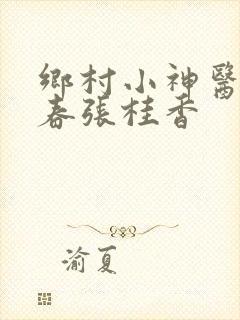 鄉村小神醫
春張桂香
渝夏